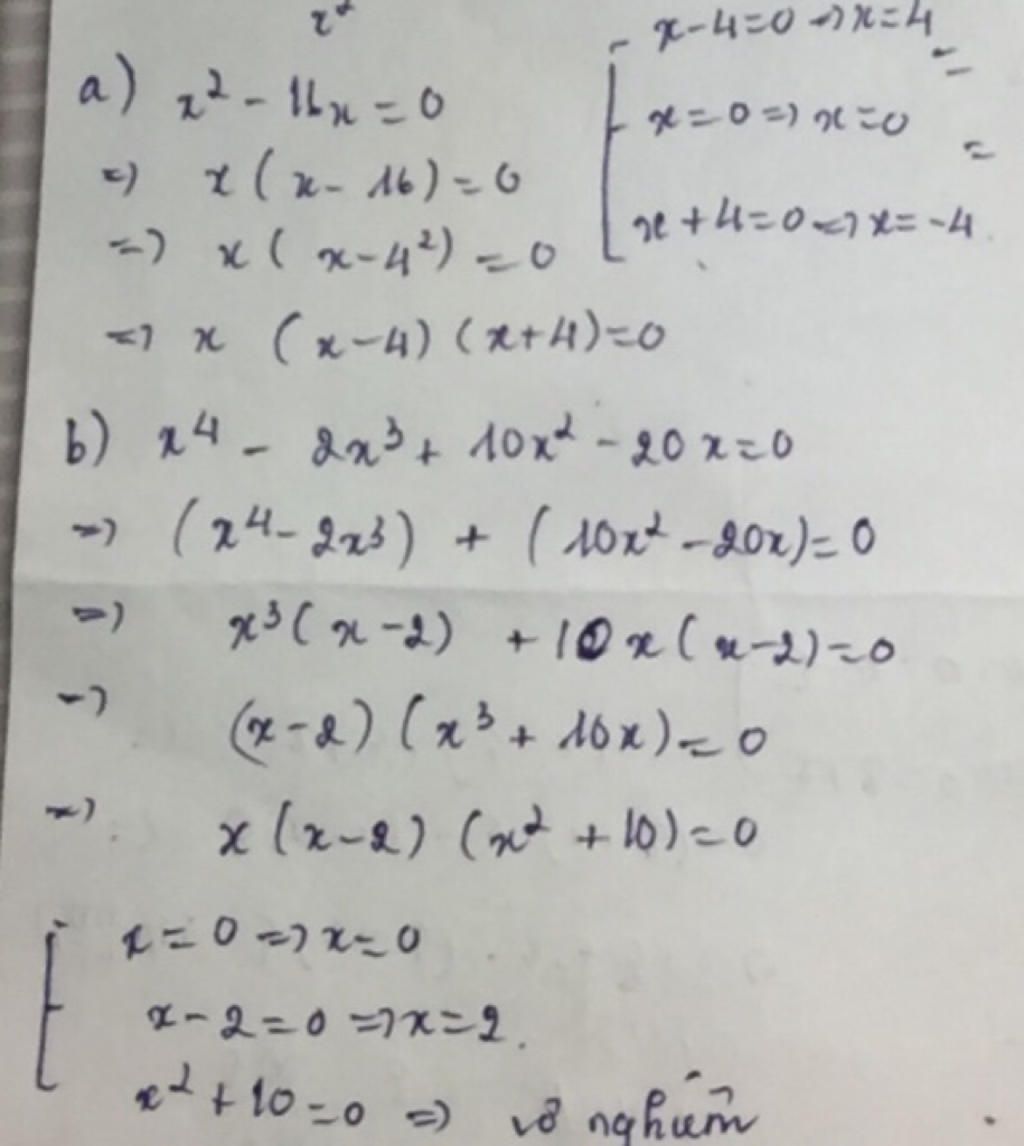 x²
a) x² - 16x = 0
=> x ( x - 16) = 0
=> x ( x - 4²) = 0
=> x (x - 4) (x + 4) = 0
x - 4 = 0 => x = 4
x = 0 => x = 0
x + 4 = 0 => x = -4.
b) x⁴ - 2x³ + 10x² - 20x = 0
=> (x⁴ - 2x³) + (10x² - 20x) = 0
=> x³ (x - 2) + 10x (x - 2) = 0
=> (x - 2) (x³ + 10x) = 0
=> x (x - 2) (x² + 10) = 0
x = 0 => x = 0
x - 2 = 0 => x = 2.
x² + 10 = 0 => vô nghiệm